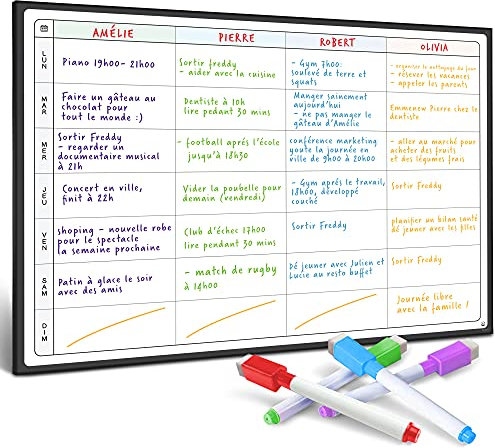 AMÉLIE
PIERRE
ROBERT
OLIVIA
LUN
Piano 19h00- 21h00
Sortir freddy
- aider avec la cuisine
- Gym 7h00:
soulevé de terre et
squats
- organiser le nettoyage du four
- réserver les vacances
- appeler les parents
MAR
Faire un gâteau au
chocolat pour
tout le monde :)
Dentiste à 10h
lire pedant 30 mins
Manger sainement
aujourd'hui
- ne pas manger le
gâteau d'Amélie
Emmenew Pierre chez le
dentiste
MER
Sortir Freddy
- regarder un
documentaire musical
à 21h
- football après l'école
jusqu'à 18h30
conférence marketing
toute la journée en
ville de 9h00 à 20h00
- aller au marché pour
acheter des fruits
et des légumes frais
JEU
Concert en ville,
finit à 22h
Vider la poubelle pour
demain (vendredi)
- Gym après le travail,
18h00, développé
couché
Sortir Freddy
VEN
shoping - nouvelle robe
pour le spectacle
la semaine prochaine
Club d'échec 17h00
lire pendant 30 mins
Sortir Freddy
planifier un bilan santé
dé jeuner avec les filles
SAM
Patin à glace le soir
avec des amis
- match de rugby
à 14h00
Dé jeuner avec Julien et
Lucie au resto buffet
Sortir Freddy
DIM
Journée libre
avec la famille !